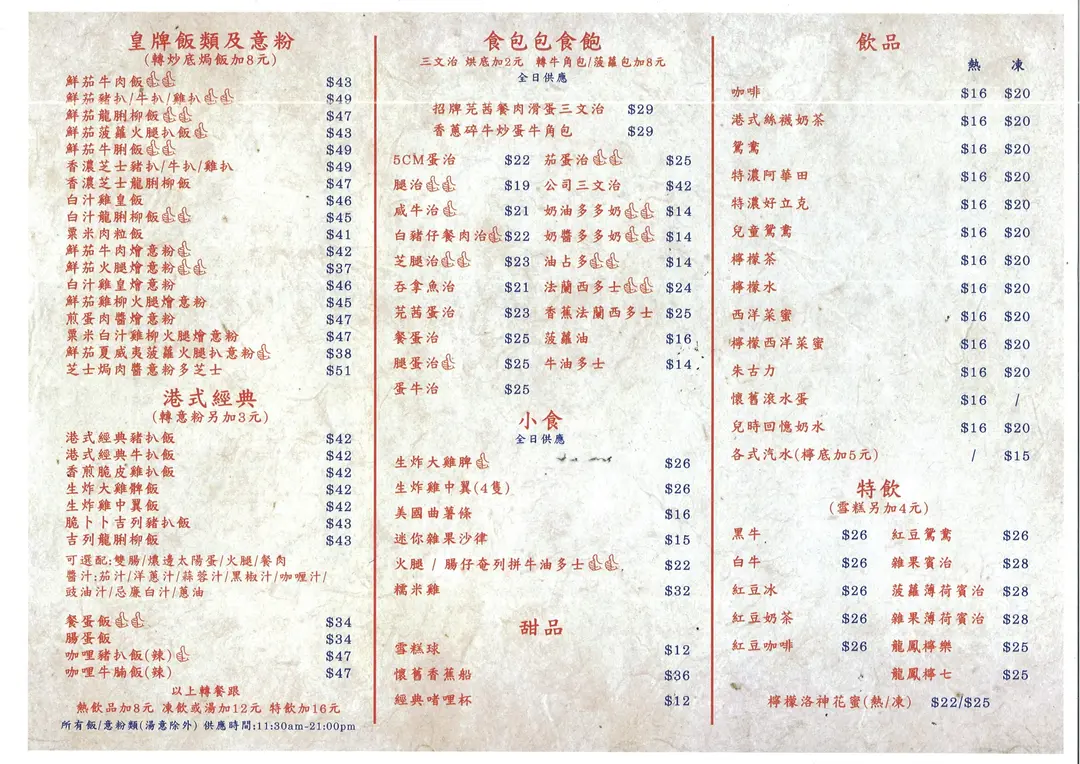 皇牌飯類及意粉
(轉炒底焗飯加8元)
鮮茄牛肉飯 $43
鮮茄豬扒/牛扒/雞扒 $49
鮮茄龍脷柳飯 $47
鮮茄菠蘿火腿扒飯 $43
鮮茄牛脷飯 $49
香濃芝士豬扒/牛扒/雞扒 $49
香濃芝士龍脷柳飯 $47
白汁雞皇飯 $46
白汁龍脷柳飯 $45
粟米肉粒飯 $41
鮮茄牛肉燴意粉 $42
鮮茄火腿燴意粉 $37
白汁雞皇燴意粉 $46
鮮茄雞柳火腿燴意粉 $45
煎蛋肉醬燴意粉 $47
粟米白汁雞柳火腿燴意粉 $47
鮮茄夏威夷菠蘿火腿扒意粉 $38
芝士焗肉醬意粉多芝士 $51
港式經典
(轉意粉另加3元)
港式經典豬扒飯 $42
港式經典牛扒飯 $42
香煎脆皮雞扒飯 $42
生炸大雞髀飯 $42
生炸雞中翼飯 $42
脆卜卜吉列豬扒飯 $43
吉列龍脷柳飯 $43
可選配:雙腸/燶邊太陽蛋/火腿/餐肉
醬汁:茄汁/洋蔥汁/蒜蓉汁/黑椒汁/咖喱汁/
豉油汁/忌廉白汁/蔥油
餐蛋飯 $34
腸蛋飯 $34
咖哩豬扒飯(辣) $47
咖哩牛腩飯(辣) $47
以上轉餐跟
熱飲品加8元 凍飲或湯加12元 特飲加16元
所有飯/意粉類(湯意除外) 供應時間:11:30am-21:00pm
食包包食飽
三文治 烘底加2元 轉牛角包/菠蘿包加8元
全日供應
招牌芫茜餐肉滑蛋三文治 $29
香蔥碎牛炒蛋牛角包 $29
5CM蛋治 $22 茄蛋治 $25
腿治 $19 公司三文治 $42
咸牛治 $21 奶油多多奶 $14
白豬仔餐肉治 $22 奶醬多多奶 $14
芝腿治 $23 油占多 $14
吞拿魚治 $21 法蘭西多士 $24
芫茜蛋治 $23 香蕉法蘭西多士 $25
餐蛋治 $25 菠蘿油 $16
腿蛋治 $25 牛油多士 $14
蛋牛治 $25
小食
全日供應
生炸大雞脾 $26
生炸雞中翼(4隻) $26
美國曲薯條 $16
迷你雜果沙律 $15
火腿 / 腸仔奄列拼牛油多士 $22
糯米雞 $32
甜品
雪糕球 $12
懷舊香蕉船 $36
經典啫哩杯 $12
飲品
熱 凍
咖啡 $16 $20
港式絲襪奶茶 $16 $20
鴛鴦 $16 $20
特濃阿華田 $16 $20
特濃好立克 $16 $20
兒童鴛鴦 $16 $20
檸檬茶 $16 $20
檸檬水 $16 $20
西洋菜蜜 $16 $20
檸檬西洋菜蜜 $16 $20
朱古力 $16 $20
懷舊滾水蛋 $16 /
兒時回憶奶水 $16 $20
各式汽水(檸底加5元) / $15
特飲
(雪糕另加4元)
黑牛 $26 紅豆鴛鴦 $26
白牛 $26 雜果賓治 $28
紅豆冰 $26 菠蘿薄荷賓治 $28
紅豆奶茶 $26 雜果薄荷賓治 $28
紅豆咖啡 $26 龍鳳檸樂 $25
龍鳳檸七 $25
檸檬洛神花蜜(熱/凍) $22/$25